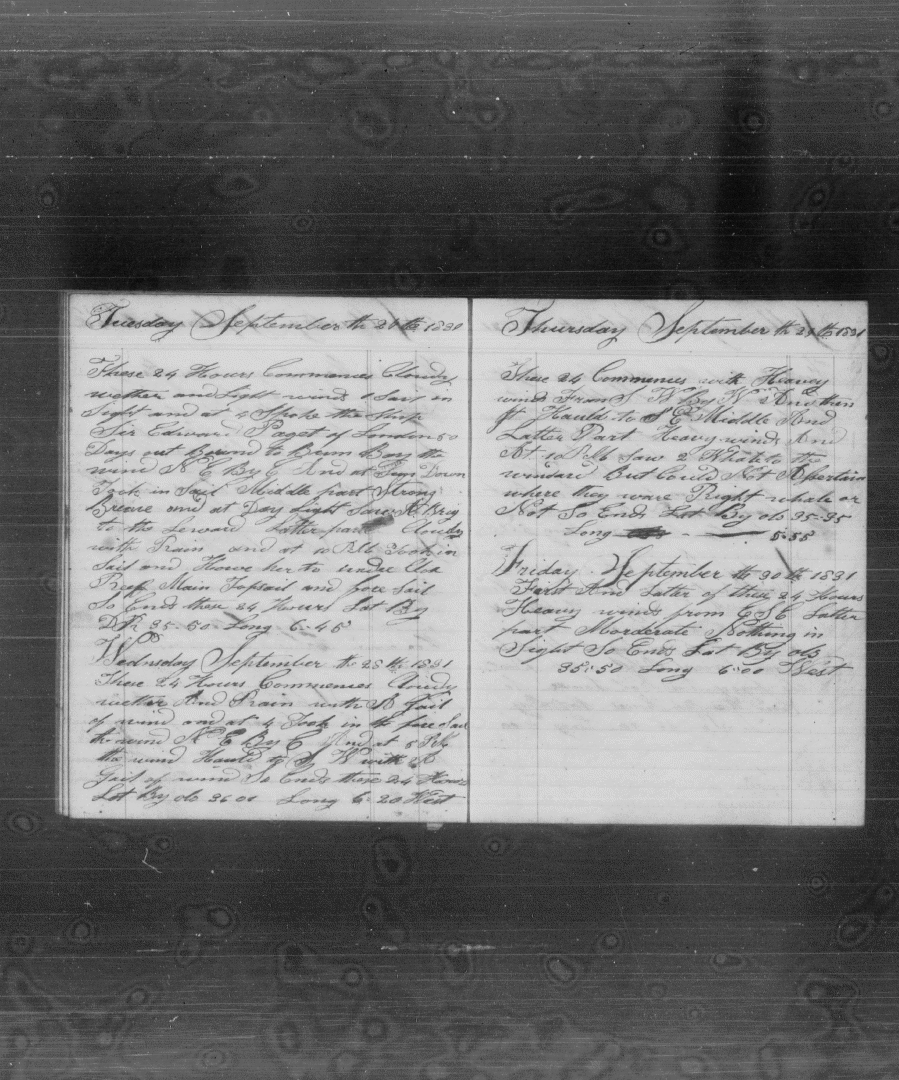 Tuesday September the 27th 1831
These 24 Hours Commences Cloudy
wether and Light winds 1 Sail in
Sight and at 4 Spoke the Ship
Sir Edward Paget of London 50
Days out Bound to Bum Bay the
wind N E By E And at Sun Down
Took in Sail Middle part Strong
Breaze and at Day Light Saw A Brig
to the Leward Latter part Cloudy
with Rain and at 10 PM Took in
Sail and Howe her to under
Reef Main Topsail and fore Sail
So Ends these 24 Hours Lat By
DR 35-50 Long 6-45
Wednsday September the 28th 1831
These 24 Hours Commences Cloudy
wether And Rain with A Gail
of wind and at 4 Took in the fore Sail
the wind N E By E And at 5 PM
the wind Hauld to S W with A
Gail of wind So Ends these 24 Hours
Lat By ob 36 01 Long 6-20 West
Thursday September the 29th 1831
These 24 Commences with Heavey
wind From S W By W And then
it Hauld to S E Middle And
Latter Part Heavy winds And
At 10 PM Saw 2 Whale to the
winward But Could Not Apertain
where they ware Right whale or
Not So Ends Lat By ob 35-35
Long - 5-55
Friday September the 30th 1831
First And Later of these 24 Hours
Heavey winds from E S E Latter
part Morderate Nothing in
Sight So Ends Lat By ob
35-50 Long 6-00 West